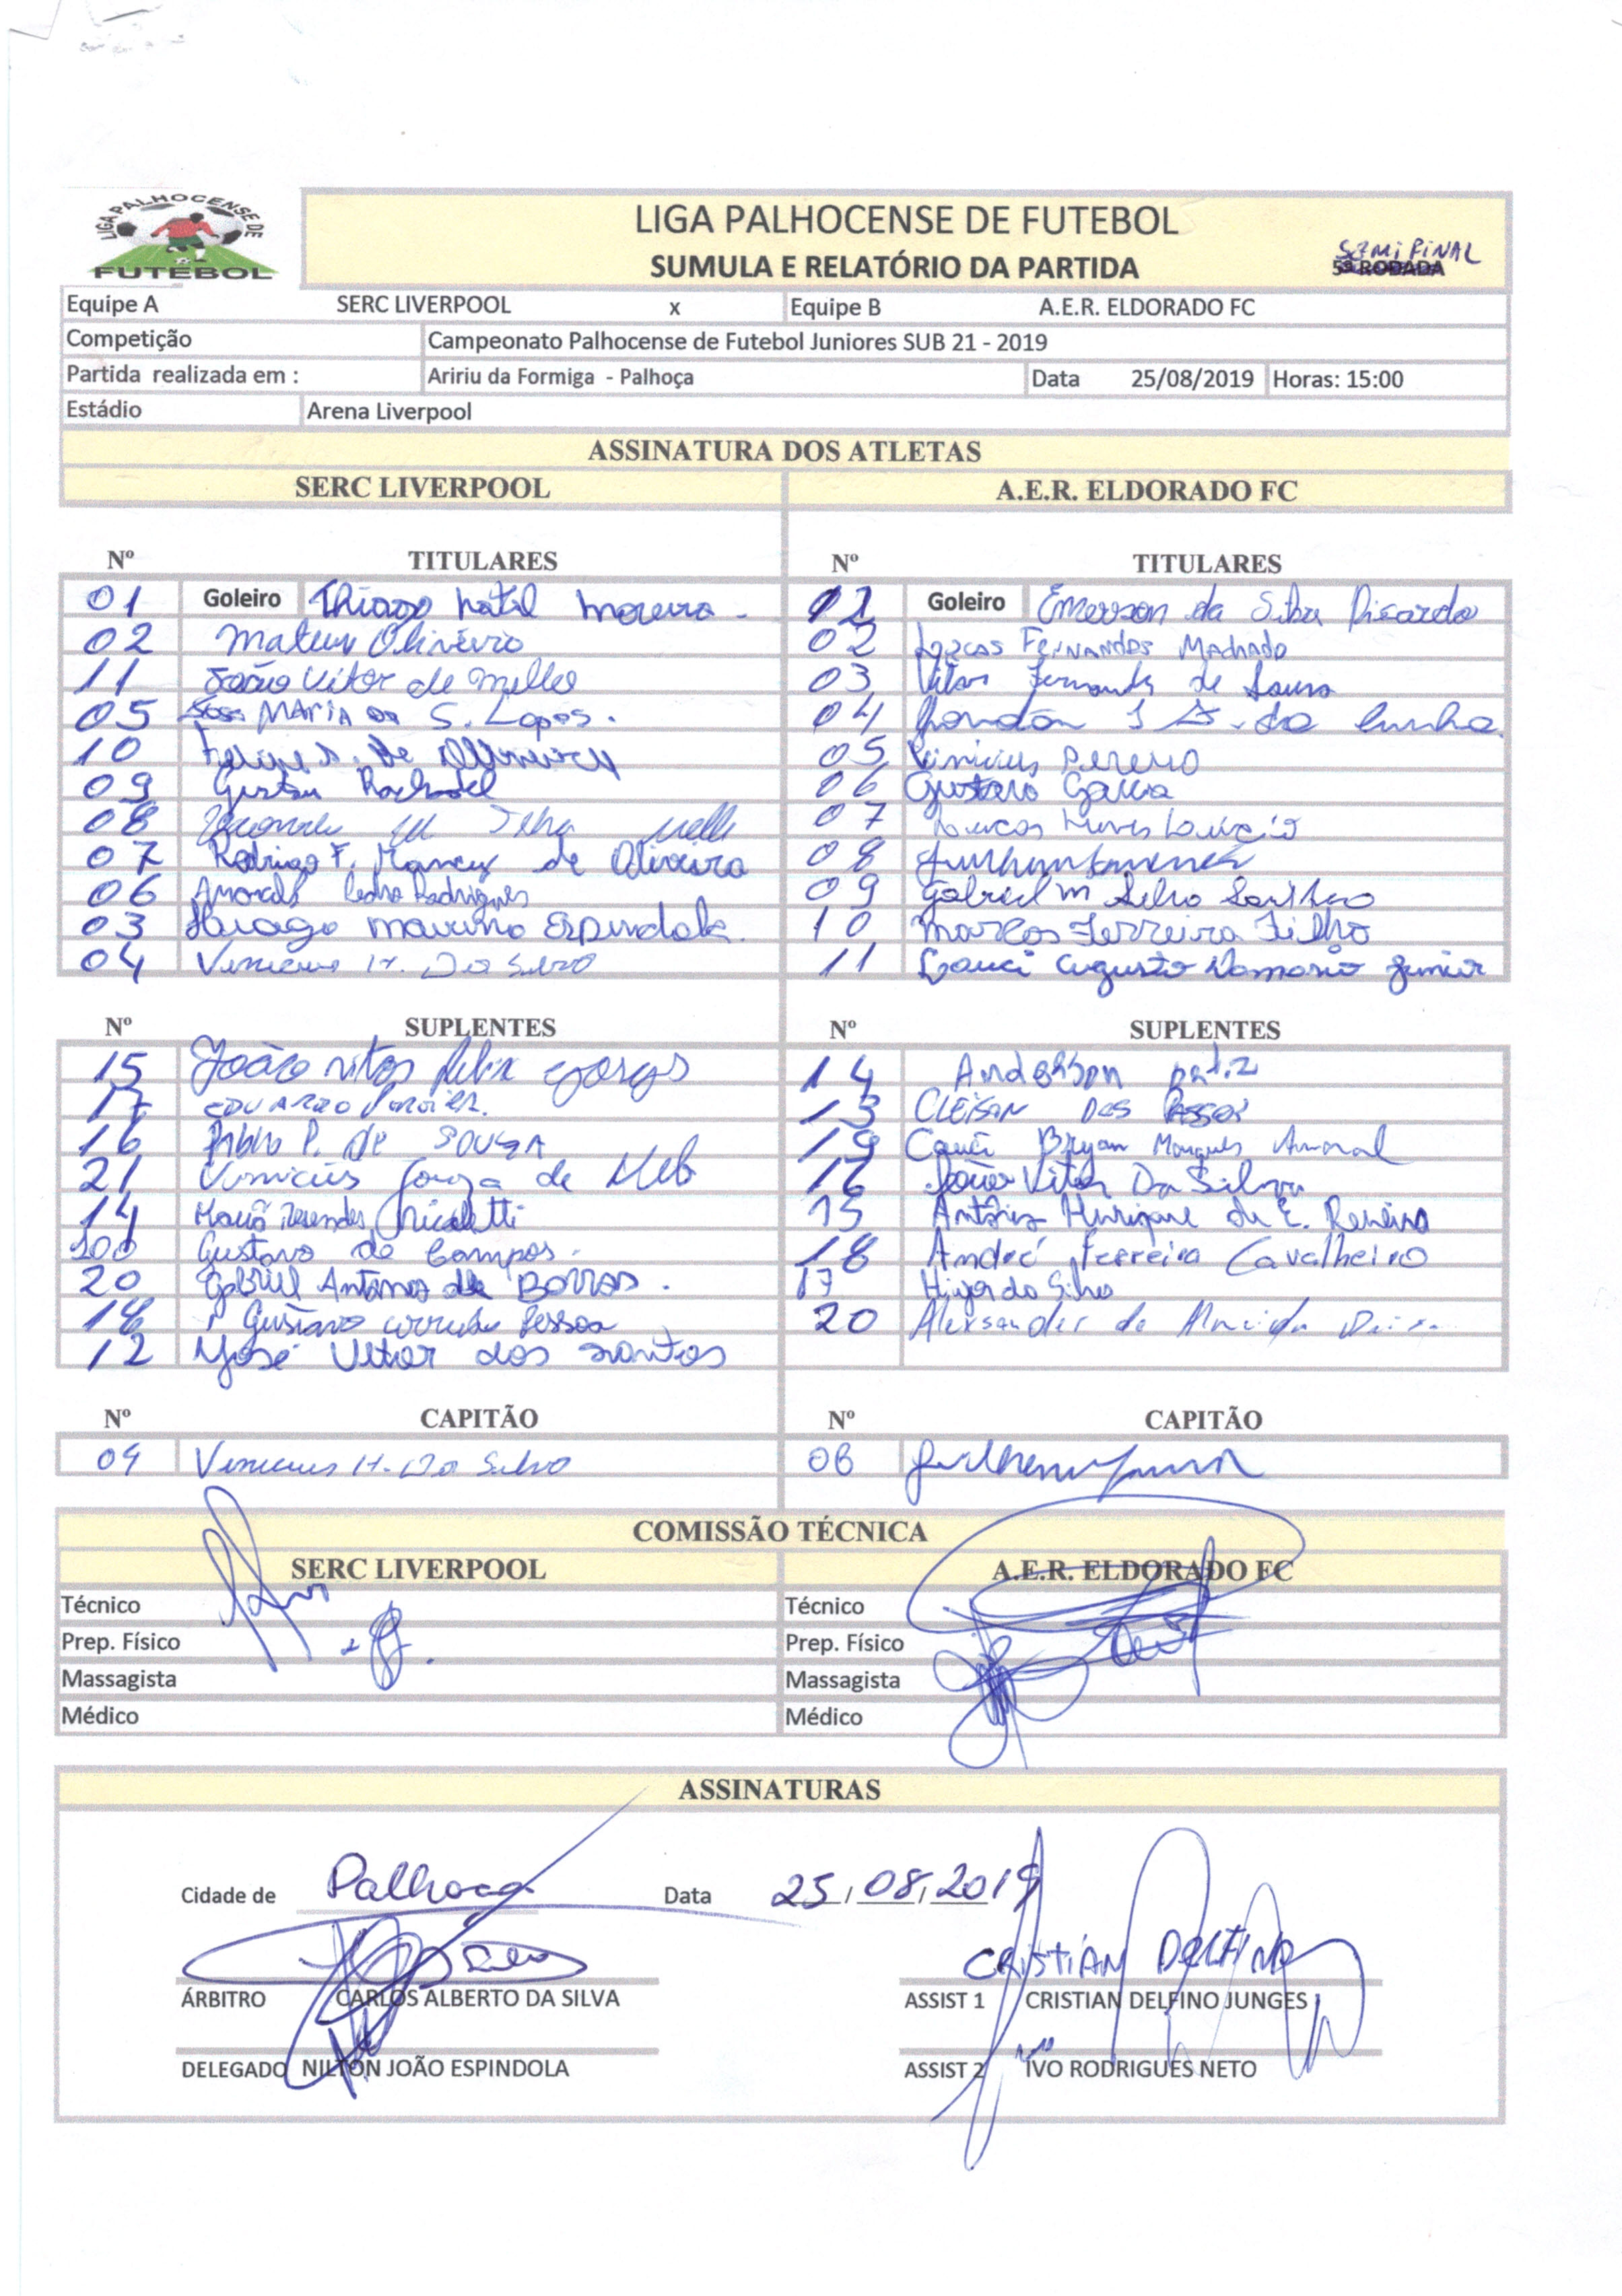 LIGA PALHOCENSE DE
FUTEBOL
LIGA PALHOCENSE DE FUTEBOL
SUMULA E RELATÓRIO DA PARTIDA
SEMI FINAL
5ª RODADA
Equipe A SERC LIVERPOOL x Equipe B A.E.R. ELDORADO FC
Competição Campeonato Palhocense de Futebol Juniores SUB 21 - 2019
Partida realizada em : Aririu da Formiga - Palhoça Data 25/08/2019 Horas: 15:00
Estádio Arena Liverpool
ASSINATURA DOS ATLETAS
SERC LIVERPOOL A.E.R. ELDORADO FC
Nº TITULARES Nº TITULARES
01 Goleiro Thiago Natal Moreira Goleiro Emerson da Silva Ricardo
02 02 Lucas Fernandes Machado
11 João Vitor de Mello 03 Vitor Fernandes de Souza
05 MARIA S. Lopes. 04 da Cunha
10 de Oliveira 05 Vinicius Pereira
09 06 Gustavo Garcia
08 07 Lucas Nunes
07 Rodrigo F. de Oliveira 08
06 Pedro Rodrigues 09 Gabriel M
03 Thiago Marino Espindola 10 Marcos Ferreira Filho
04 Vinicius H. Da Silva 11 Cauci Augusto Damasio Junior
Nº SUPLENTES Nº SUPLENTES
15 João Vitor 14 Anderson
17 EDUARDO 13 CLEISON DOS PASSOS
16 Pablo P. de SOUZA 19 Cauã Bryan Marques Amaral
21 Vinicius Souza de Melo 16 João Vitor Da Silva
14 Nicoletti 15 Antônio Henrique
100 Gustavo de Campos. 18 André Ferreira Cavalheiro
20 Gabriel Antonio de Borros. 17 Higor da Silva
18 Gustavo Pessoa 20 Alexsander de Almeida
12 José Vitor dos Santos
Nº CAPITÃO Nº CAPITÃO
04 Vinicius H. Da Silva 08
COMISSÃO TÉCNICA
SERC LIVERPOOL A.E.R. ELDORADO FC
Técnico Técnico
Prep. Físico Prep. Físico
Massagista Massagista
Médico Médico
ASSINATURAS
Cidade de Palhoça Data 25/08/2019
CRISTIAN DELFINO
ÁRBITRO CARLOS ALBERTO DA SILVA ASSIST 1 CRISTIAN DELFINO JUNGES
DELEGADO NILTON JOÃO ESPINDOLA ASSIST 2 IVO RODRIGUES NETO